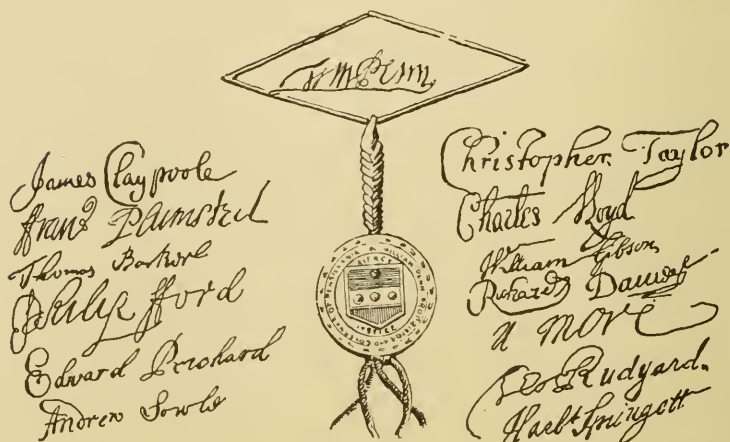 Wm Penn
James Claypoole
Fran⁠s Plumsted
Thomas Barker
Philip Fford
Edward Prichard
Andrew Sowle
Christopher Taylor
Charles Lloyd
William Gibson
Richard Davies
n more
Tho Rudyard.
Harbt Springett
MERCY
JUSTICE